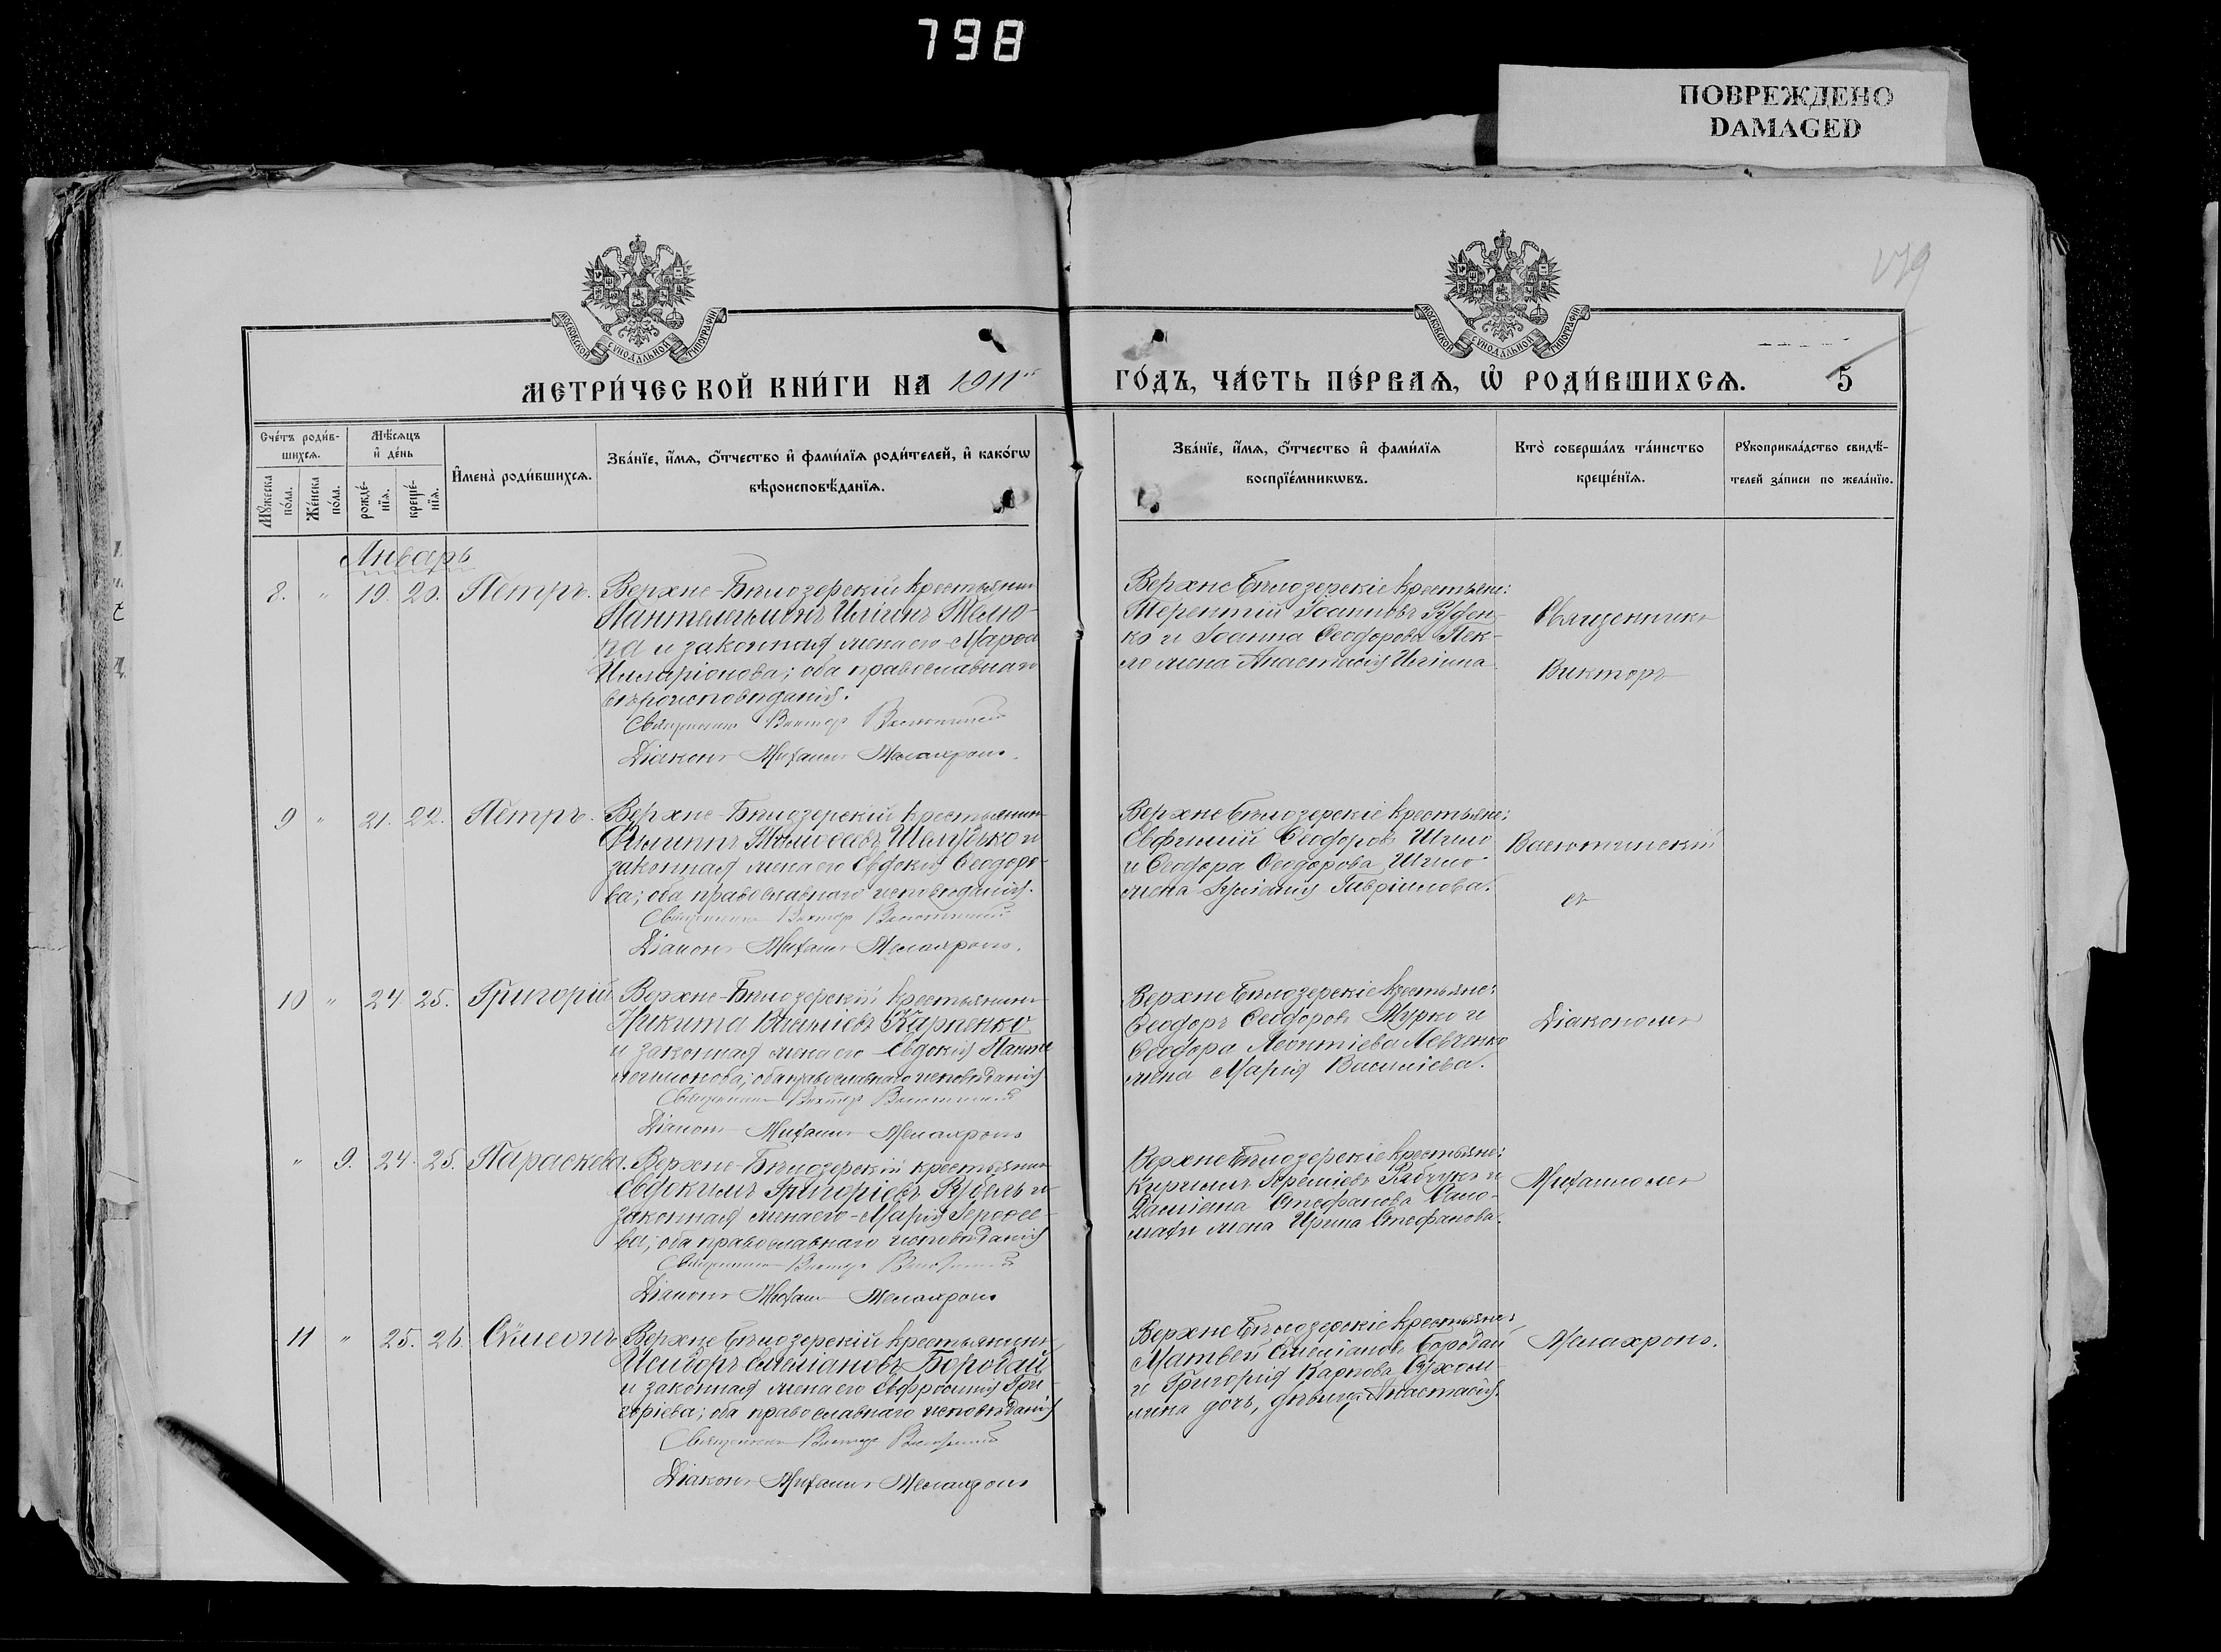 798
ПОВРЕЖДЕНО
DAMAGED
179
МОСКОВСКОЙ СУНОДАЛЬНОЙ ТИПОГРАФІИ
МОСКОВСКОЙ СУНОДАЛЬНОЙ ТИПОГРАФІИ
МЕТРИ́ЧЕСКОЙ КНИ́ГИ НА 1911
ГО́ДЪ, ЧА́СТЬ ПЕ́РВАѦ, Ѡ҆ РОДИ́ВШИХСѦ. 5
Сче́тъ роди́в-
шихсѧ.
Мꙋ́жеска по́ла.
Же́нска по́ла.
Мѣ́сѧцъ
и҆ де́нь
рожде́-
нїѧ.
креще́-
нїѧ.
И҆мена̀ роди́вшихсѧ.
Зва́нїе, и҆́мѧ, ѻ҆́тчество и҆ фами́лїѧ роди́телей, и҆ како́гѡ
вѣроисповѣ́данїѧ.
Зва́нїе, и҆́мѧ, ѻ҆́тчество и҆ фами́лїѧ
воспрїе́мникѡвъ.
Кто̀ соверша́лъ та́инство
креще́нїѧ.
Рꙋкоприкла́дство свидѣ́-
телей за́писи по жела́нїю.
Январь
8. " 19. 20. Петръ.
Верхне-Бѣлозерскій крестьянинъ
Пантелеимонъ Иліинъ
и законная жена его
Иларіонова; оба православнаго
вѣроисповѣданія.
Священникъ Викторъ
Діаконъ Михаилъ Мелахронъ.
Верхне Бѣлозерскіе крестьяне:
Терентій Іоанновъ Руден-
ко и Іоанна Ѳеодорова Пек-
ло жена Анастасія Иліина
Священникъ
Викторъ
9 " 21. 22. Петръ.
Верхне-Бѣлозерскій крестьянинъ
Филиппъ Тимоѳеевъ Шелудько и
законная жена его Евдокія Ѳеодоро-
ва; оба православнаго исповѣданія.
Священникъ Викторъ
Діаконъ Михаилъ Мелахронъ.
Верхне Бѣлозерскіе крестьяне:
Евфимій Ѳеодоровъ Шило
и Ѳеодора Ѳеодорова Шило
жена Іуліанія Гавріилова.
съ
10 " 24 25. Григорій
Верхне-Бѣлозерскій крестьянинъ
Никита Карпенко
и законная жена его Евдокія Панте-
леимонова; оба православнаго исповѣданія
Священникъ Викторъ
Діаконъ Михаилъ Мелахронъ
Верхне Бѣлозерскіе крестьяне:
Ѳеодоръ Ѳеодоровъ Мурко и
Ѳеодора Леонтіева Левченко
жена Марія Василіева.
Діакономъ
" 9. 24. 25. Параскева.
Верхне-Бѣлозерскій крестьянинъ
Евдокимъ Григоріевъ Рубель и
законная жена его - Марія Іероѳее-
ва; оба православнаго исповѣданія
Священникъ Викторъ
Діаконъ Михаилъ Мелахронъ
Верхне Бѣлозерскіе крестьяне:
Кириллъ Рабчукъ и
Даміана Стефанова
жена Ирина Стефанова.
Михаиломъ
11 " 25. 26. Симеонъ
Верхне Бѣлозерскій крестьянинъ
Исидоръ Емеліановъ Бородай
и законная жена его Евфросинія Гри-
горіева; оба православнаго исповѣданія
Священникъ Викторъ
Діаконъ Михаилъ Мелахронъ
Верхне Бѣлозерскіе крестьяне:
Матвей Емеліановъ Бородай
и Григорія Карпова Сухом-
лина дочь, дѣвица Анастасія.
Мелахронъ.